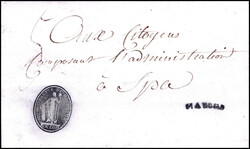 Aux Citoyens
Composant l'administration
à Spa